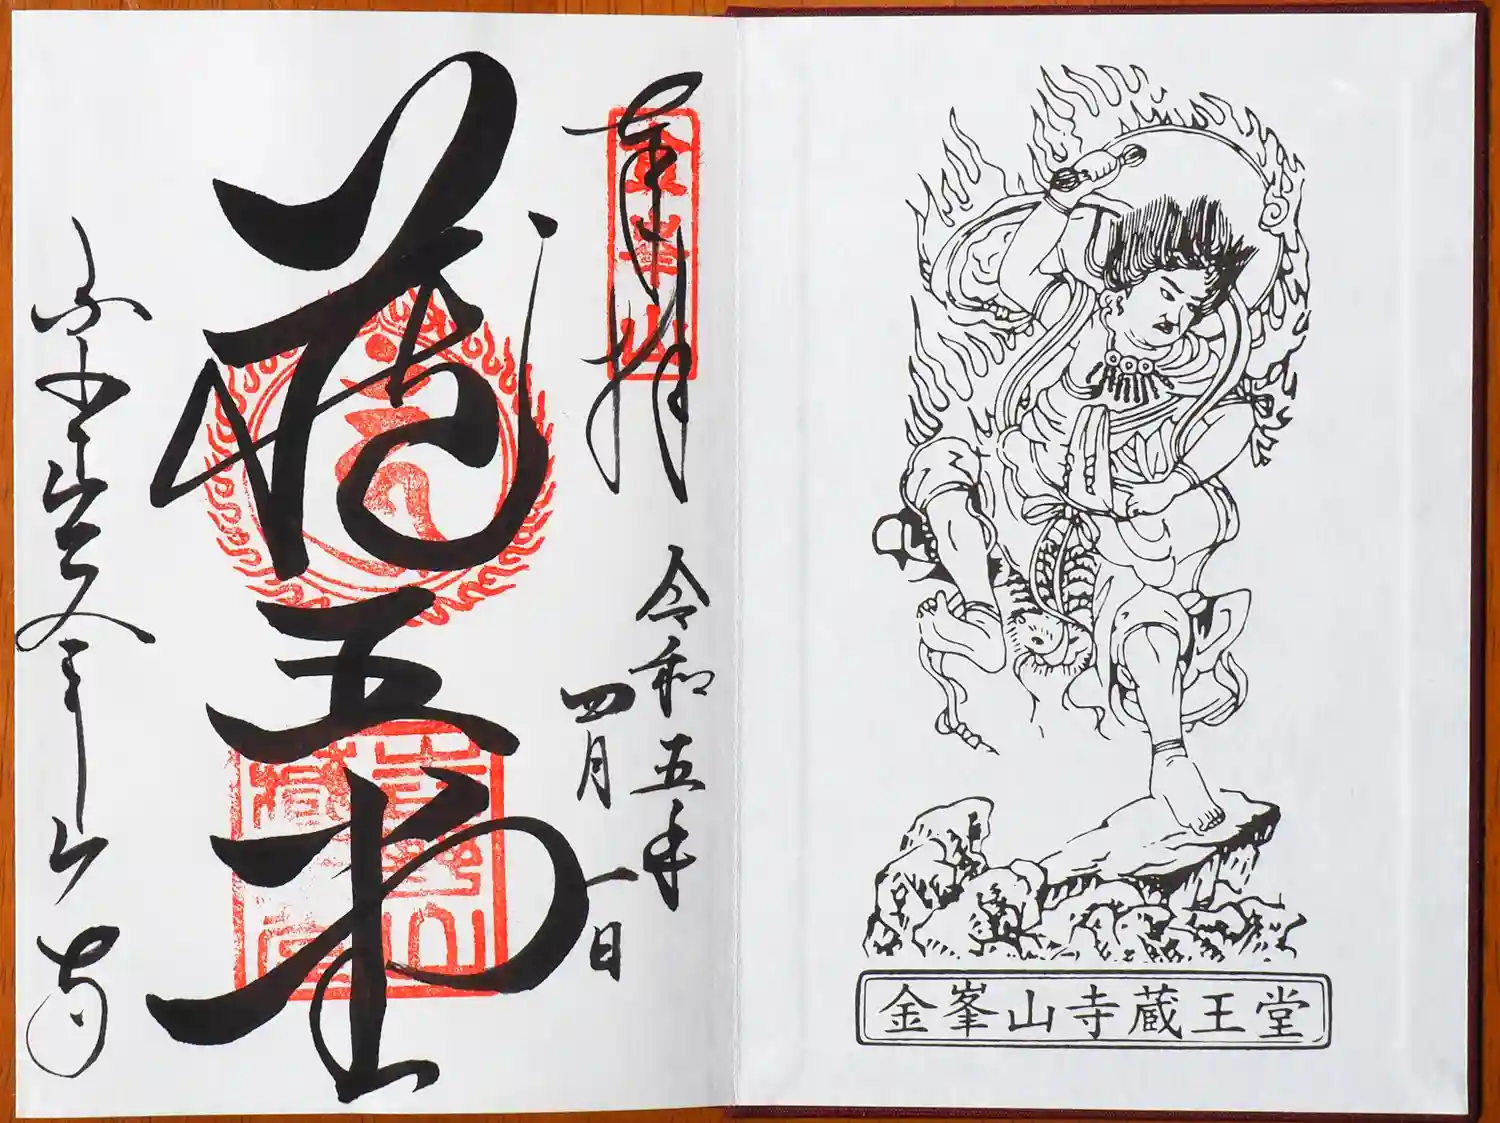 金峯山寺蔵王堂
奉拝
金峯山
令和五年
四月一日
蔵王堂